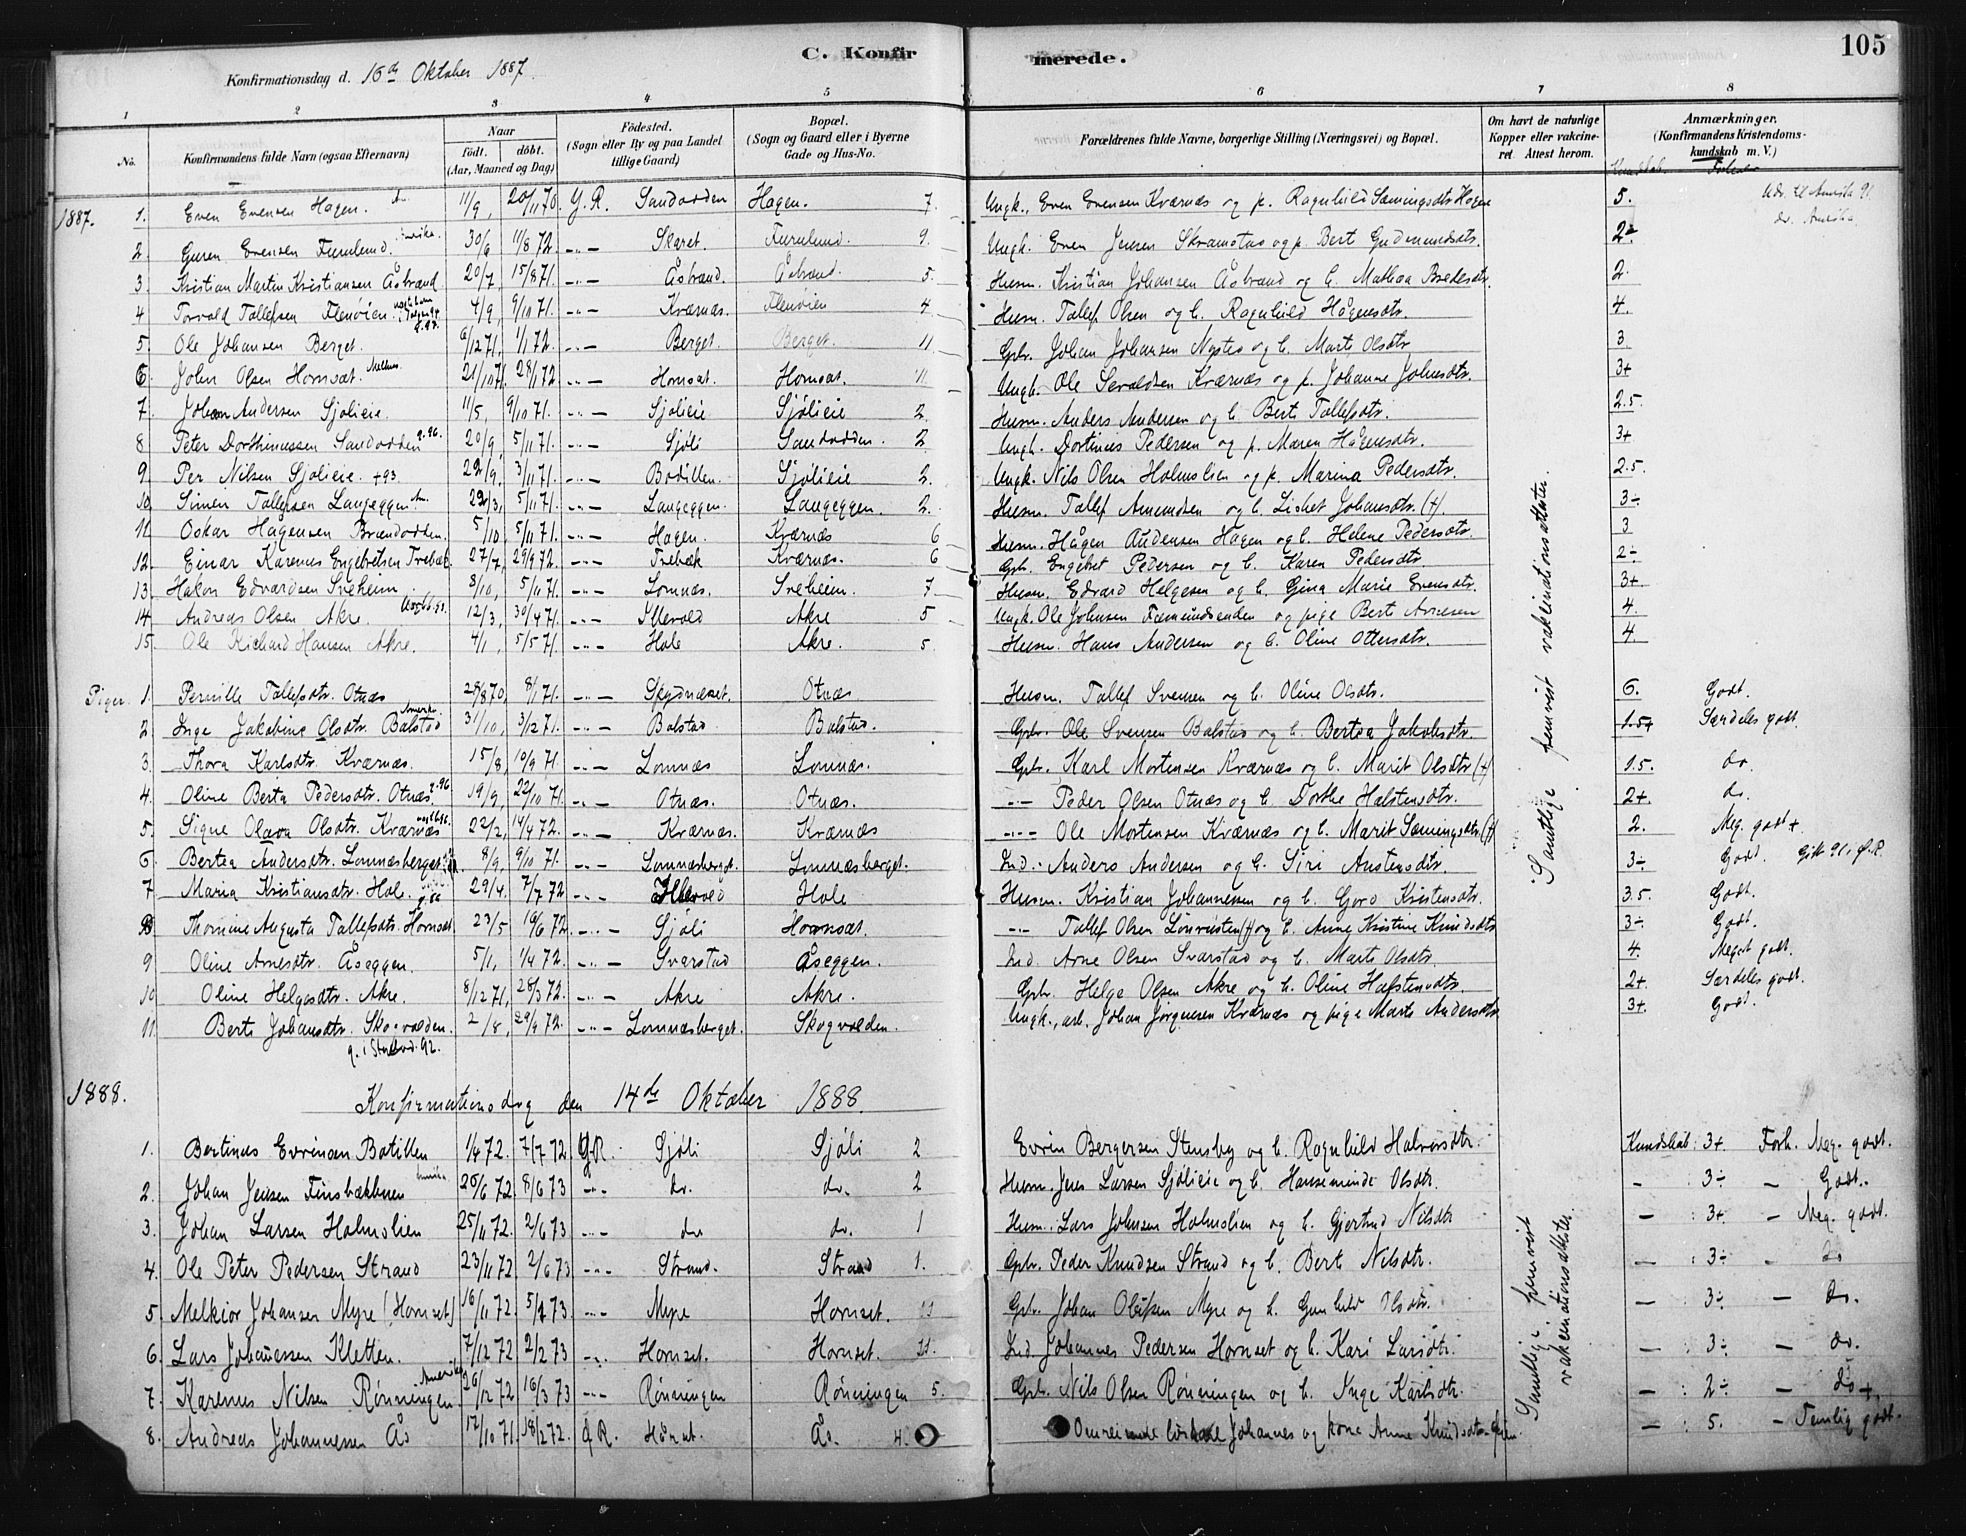 C. Konfirmerede.
105
Konfirmationsdag d. 16de Oktober 1887.
1 2 3 4 5 6 7 8
No. Konfirmandens fulde Navn (ogsaa Efternavn) Naar født. døbt. (Aar, Maaned og Dag) Fødested. (Sogn eller By og paa Landet tillige Gaard) Bopæl. (Sogn og Gaard eller i Byerne Gade og Hus-No. Forældrenes fulde Navne, borgerlige Stilling (Næringsvei) og Bopæl. Om havt de naturlige Kopper eller vakcineret Attest herom. Anmærkninger. (Konfirmandens Kristendomskundskab m. V.)
1887. 1. Even Evensen Hagen. 11/9, 20/11 70. Y.R. Sandodden Hagen. 7. Ungk. Even Evensen Kværnæs og p. Ragnhild Sæmingsdtr Hagen 5.
2 Evensen Furulund. 30/6 11/8 72. -"- Skaret. Furulund. 9. Ungk. Even Jensen og p. Bert Gudmundsdtr. 2÷
3. Kristian Martin Kristiansen Åsbrænd 20/7, 15/8 71. -"- Åsbrænd. Åsbrænd. 5. Husm. Kristian Johansen Åsbrænd og h. Mathea 2.
4 Torvald Tollefsen Flenøien. 4/9, 9/10 71. -"- Kværnæs. Flenøien 4 Husm. Tollef Olsen og h. Ragnhild Hågensdtr. 4.
5. Ole Johansen Berget. 6/12 71, 1/1 72. -"- Berget. Berget. 11 Gbr. Johan Johansen og h. Marte Olsdtr 3.
6 John Olsen Hornsæt. 21/10 71. 28/1 72. -"- Hornsæt. Hornsæt. 11 Ungk. Ole Kværnæs og p. Johanne Johnsdtr. 3+
7. Johan Andersen Sjølieie. 11/5, 9/10 71. -"- Sjølieie Sjølieie 2. Husm. Anders Andersen og h. Berte Tollefsdtr. 2.5.
8 Peter Dorthinussen Sandodden 20/9, 5/11 71. -"- Sjøli Sandodden. 2 Ungk. Dortinus Pedersen og p. Maren Hågensdtr. 3+
9 Per Nilsen Sjølieie. +93 22/9, 3/11 71. -"- Botillen. Sjølieie 2. Ungk. Nils Olsen Holmslien og p. Marina Pedersdtr. 2.5.
10 Simen Tollefsen Langeggen 22/3, 5/11 71. -"- Langeggen. Langeggen. 2. Husm. Tollef Amundsen og h. Lisbet Johansdtr. (+). 3÷
11. Oskar Hågensen Brændodden. 5/10, 5/11 71. -"- Hagen. Kværnæs 6 Husm. Hågen Audensen Hagen og h. Helene Pedersdtr. 3
12. Einar Karenus Engebretsen Trebæk. 27/7, 29/9 72. -"- Trebæk Kværnæs. 6 Gbr. Engebret Pedersen og h. Karen Pedersdtr. 2÷
13. Hakon Edvardsen Sveheim 8/10, 5/11 71. -"- Lomnæs. Sveheim. 7 Husm. Edvard Helgesen og h. Gina Marie Evensdtr. 3+.
14. Andreas Olsen Akre. 12/3, 30/4 71. -"- Illevold Akre 5 Ungk. Ole Johnsen Fæmundsenden og pige Bert Arnesen 4.
15. Ole Richard Hansen Akre. 4/1, 5/5 71. -"- Hole Akre. 5. Husm. Hans Andersen og h. Oline Ottersdtr. 4.
Piger. 1. Pernille Tollefsdtr. Otnæs 28/8 70, 8/1 71. -"- Skydnæset. Otnæs. Husm. Tollef Svensen og h. Oline Olsdtr. 6. Godt.
2 Inga Jakobine Olsdtr. Bolstad 31/10, 3/12 71. -"- Bolstad Bolstad. Gbr. Ole Svensen Bolstad og h. Bertea Jakobsdtr. 1.5+ Særdeles godt.
3. Thora Karlsdtr. Kværnæs. 15/8, 10/9 71. -"- Lomnæs Lomnæs. Gbr. Karl Mortensen Kværnæs og h. Marit Olsdtr (+) 1.5. do.
4. Oline Berta Pedersdtr. Otnæs 19/9, 22/10 71. -"- Otnæs. Otnæs. -"- Peder Olsen Otnæs og h. Dorthe Halstensdtr. 2+. do.
5. Signe Olava Olsdtr. Kværnæs 22/2, 14/4 72. -"- Kværnæs. Kværnæs -"- Ole Mortensen Kværnæs og h. Marit Sæmingsdtr (+) 2. Meg. godt +
6. Bertea Andersdtr. Lomnæsberget 8/9, 9/10 71. -"- Lomnæsberget. Lomnæsberget. Ind. Anders Andersen og h. Siri Austensdtr. 3÷ Godt.
7. Maria Kristiansdtr. Hole. 29/4. 7/7 72 -"- Illevold Hole Husm. Kristian Johannessen og h. Gjoro Kristensdtr. 3.5. Godt.
8 Thomine Augusta Tollefsdtr. Hornsæt 23/5 16/6 72. -"- Sjøli Hornsæt. -"- Tollef Olsen (+) og h. Anne Kristine Knudsdtr 3÷ Godt.
9 Oline Arnesdtr. Åseggen. 5/1, 1/4 72. -"- Svarstad Åseggen. Ind. Arne Olsen Svarstad og h. Marte Olsdtr. 4. Meget godt.
10 Oline Helgesdtr. Akre. 8/12 71, 28/3 72. -"- Akre Akre. Gbr. Helge Olsen Akre og h. Oline Halstensdtr. 2+ Særdeles godt.
11. Berte Johansdtr. Skogvolden. 2/8, 29/9 72. -"- Lomnæsberget. Skogvolden. Ungk., arb. Johan Jørgensen Kværnæs og pige Marte Andersdtr 3+. Godt.
Samtlige fremvist vakcinationsattester.
1888. Konfirmationsdag den 14de Oktober 1888.
1. Bertinus Evensen Botillen 1/4 72. 7/7 72 Y.R. Sjøli Sjøli 2 Bergersen Stensby og h. Ragnhild Halvorsdtr. Kundskab: 3+. Forh. Meg. godt.
2. Johan Jensen Finsbækbruen 26/6 72. 8/6 73 -"- do. do. 2 Husm. Jens Larsen Sjølieie og h. Hanseminde Olsdtr. — : 3÷ — Godt.
3. Johan Larsen Holmslien 25/11 72. 2/6 73 -"- do do. 1 Husm. Lars Johnsen Holmslien og h. Gjertrud Nilsdtr — : 3+. — Meg. godt.
4. Ole Peter Pedersen Strand 23/11 72. 2/6 73 -"- Strand. Strand 1. Gbr. Peder Knudsen Strand og h. Berte Nilsdtr. — : 3÷ — do
5. Melkior Johansen Myre (Hornset) 16/11 72. 73 -"- Myre Hornset. 11 Gbr. Johan Olufsen Myre og h. Gunhild Olsdtr. — : 3÷ — do.
6. Lars Johannessen Kletten. 7/12 72 2/2 73 -"- Hornset. Hornset. 11. Ind. Johannes Pedersen Hornset og h. Kari Larsdtr. — : 3÷ — do.
7. Karenus Nilsen Rønningen. Amerika 26/12 72. 16/3 73 -"- Rønningen Rønningen 5. Gbr. Nils Olsen Rønningen og h. Inge Karlsdtr. — : 2÷ — do +.
8. Andreas Johannessen Ås 17/10 71. 18/2 72. Y.R. Ås. 4. Omreisende Johannes og kone Anne Knudsdtr — : 5. — Temlig godt.
Samtlige fremvist vakcinationsattester.